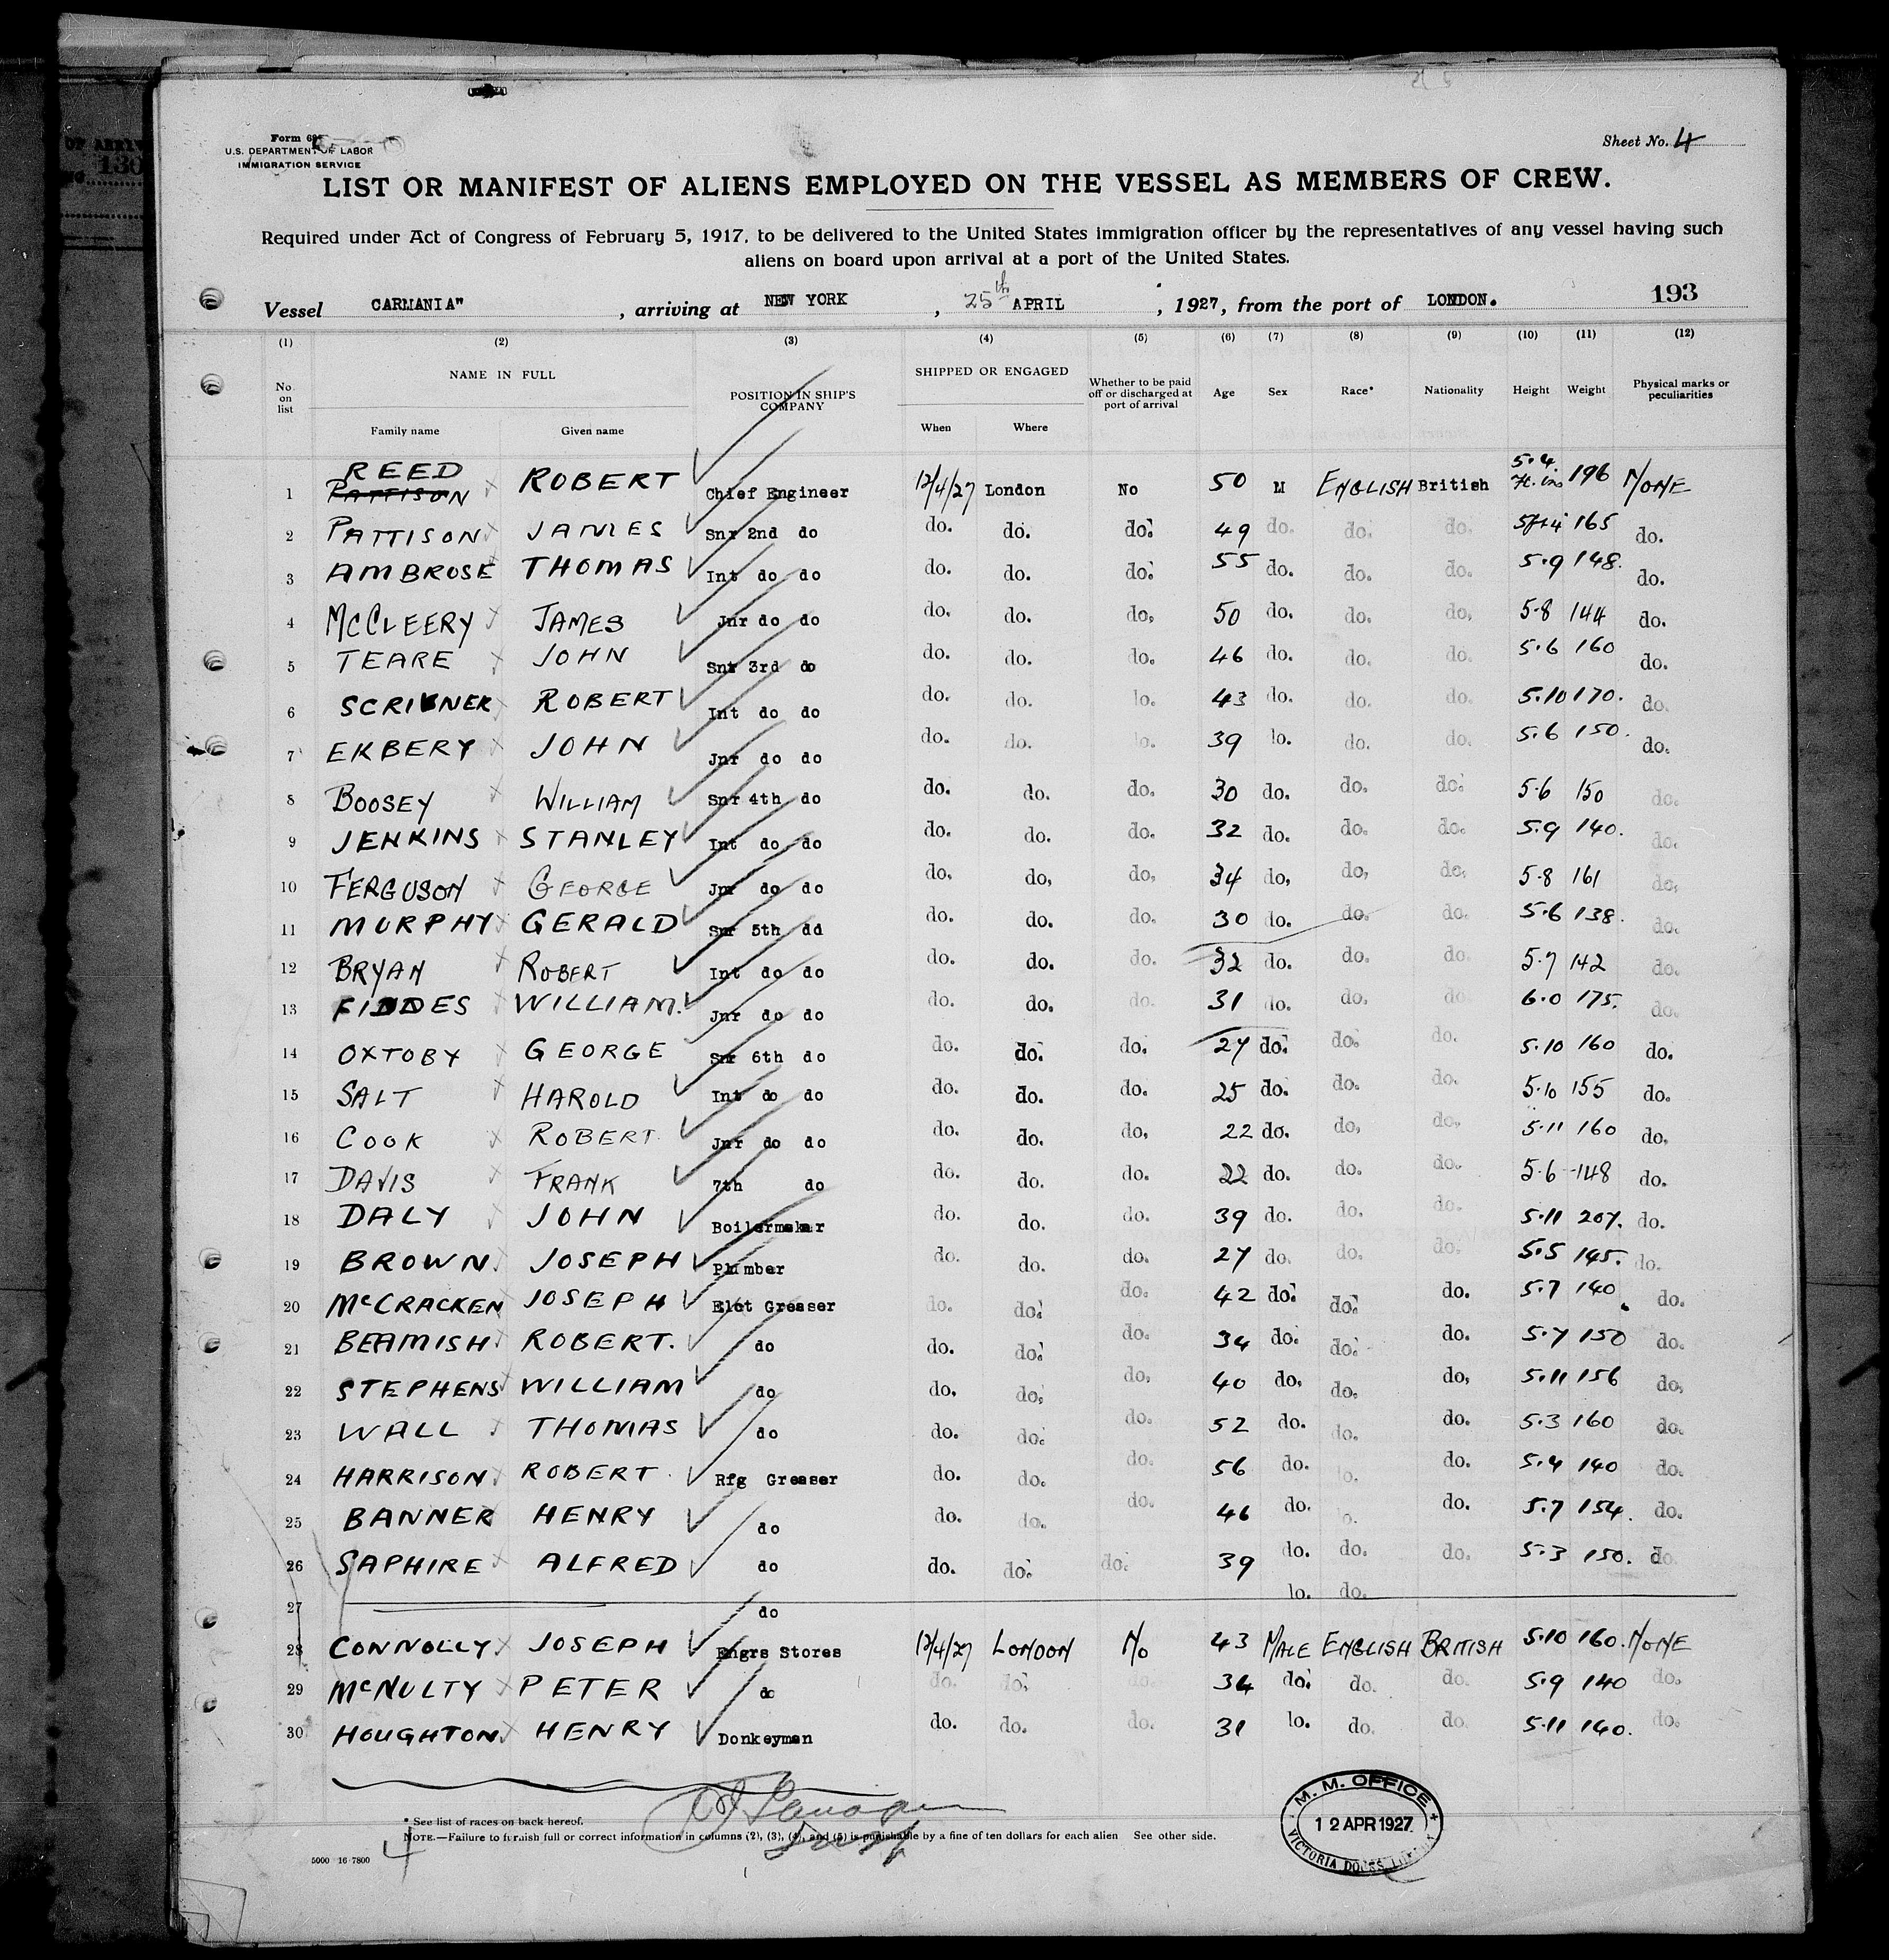 OF ARRIV
130
Form 68
U.S. DEPARTMENT OF LABOR
IMMIGRATION SERVICE
Sheet No. 4
LIST OR MANIFEST OF ALIENS EMPLOYED ON THE VESSEL AS MEMBERS OF CREW.
Required under Act of Congress of February 5, 1917, to be delivered to the United States immigration officer by the representatives of any vessel having such
aliens on board upon arrival at a port of the United States.
Vessel CARMANIA" , arriving at NEW YORK , 25th APRIL , 1927, from the port of LONDON. 193
(1) (2) (3) (4) (5) (6) (7) (8) (9) (10) (11) (12)
No. on list NAME IN FULL Family name Given name POSITION IN SHIP'S COMPANY SHIPPED OR ENGAGED When Where Whether to be paid off or discharged at port of arrival Age Sex Race* Nationality Height Weight Physical marks or peculiarities
1 PATTISON REED ROBERT Chief Engineer 12/4/27 London No 50 M ENGLISH British 5.4. ft. ins 196 NONE
2 PATTISON JAMES Snr 2nd do do. do. do. 49 do. do. do. 5ft4 165 do.
3 AMBROSE THOMAS Int do do do. do. do. 55 do. do. do. 5.9 148. do.
4 McCLEERY JAMES Jnr do do do. do. do. 50 do. do. do. 5.8 144 do.
5 TEARE JOHN Snr 3rd do do. do. do. 46 do. do. do. 5.6 160 do.
6 SCRIBNER ROBERT Int do do do. do. do. 43 do. do. do. 5.10 170. do.
7 EKBERY JOHN Jnr do do do. do. do. 39 do. do. do. 5.6 150. do.
8 BOOSEY WILLIAM Snr 4th do do. do. do. 30 do. do. do. 5.6 150 do.
9 JENKINS STANLEY Int do do do. do. do. 32 do. do. do. 5.9 140. do.
10 FERGUSON GEORGE Jnr do do do. do. do. 34 do. do. do. 5.8 161 do.
11 MURPHY GERALD Snr 5th dd do. do. do. 30 do. do. do. 5.6 138. do.
12 BRYAN ROBERT Int do do do. do. do. 32 do. do. do. 5.7 142 do.
13 FIDDES WILLIAM. Jnr do do do. do. do. 31 do. do. do. 6.0 175. do.
14 OXTOBY GEORGE Snr 6th do do. do. do. 27 do. do. do. 5.10 160 do.
15 SALT HAROLD Int do do do. do. do. 25 do. do. do. 5.10 155 do.
16 COOK ROBERT. Jnr do do do. do. do. 22 do. do. do. 5.11 160 do.
17 DAVIS FRANK 7th do do. do. do. 22 do. do. do. 5.6 148 do.
18 DALY JOHN Boilermaker do. do. do. 39 do. do. do. 5.11 207. do.
19 BROWN. JOSEPH Plumber do. do. do. 27 do. do. do. 5.5 145. do.
20 McCRACKEN JOSEPH Elct Greaser do. do. do. 42 do. do. do. 5.7 140 do.
21 BEAMISH ROBERT. do do. do. do. 34 do. do. do. 5.7 150 do.
22 STEPHENS WILLIAM do do. do. do. 40 do. do. do. 5.11 156 do.
23 WALL THOMAS do do. do. do. 52 do. do. do. 5.3 160 do.
24 HARRISON ROBERT. Rfg Greaser do. do. do. 56 do. do. do. 5.4 140 do.
25 BANNER HENRY do do. do. do. 46 do. do. do. 5.7 154. do.
26 SAPHIRE ALFRED do do. do. do. 39 do. do. do. 5.3 150. do
27 do do. do.
28 CONNOLLY JOSEPH Engrs Stores 12/4/27 LONDON No 43 MALE ENGLISH BRITISH 5.10 160. NONE
29 McNULTY PETER do do. do. do. 34 do. do. do. 5.9 140 do.
30 HOUGHTON HENRY Donkeyman do. do. do. 31 do. do. do. 5.11 140. do.
* See list of races on back hereof.
NOTE.—Failure to furnish full or correct information in columns (2), (3), (4), and (5) is punishable by a fine of ten dollars for each alien See other side.
5000 16-7800
4
M. M. OFFICE
12 APR 1927
VICTORIA DOCKS,